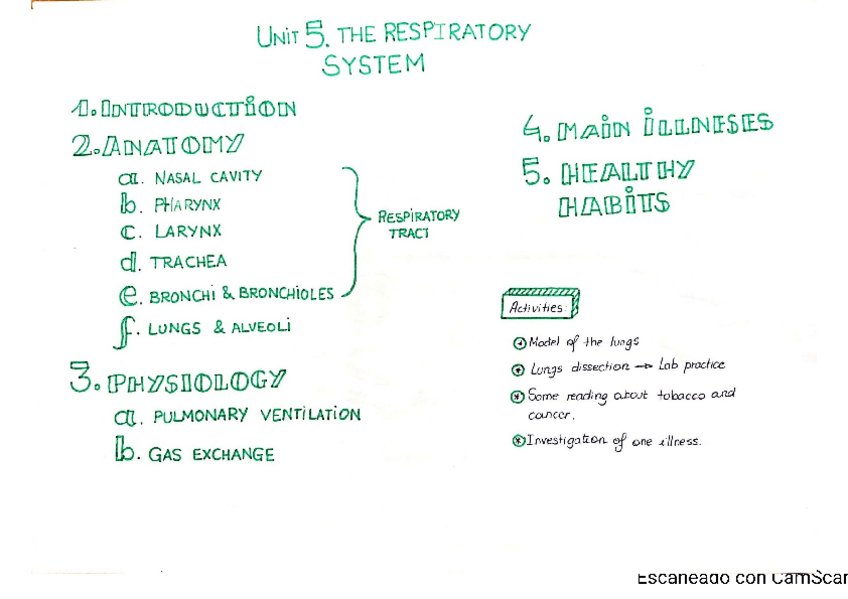 Unit 5. THE RESPIRATORY
SYSTEM
1. INTRODUCTION
2. ANATOMY
a. NASAL CAVITY
b. PHARYNX
c. LARYNX
d. TRACHEA
e. BRONCHI & BRONCHIOLES
f. LUNGS & ALVEOLI
RESPIRATORY
TRACT
3. PHYSIOLOGY
a. PULMONARY VENTILATION
b. GAS EXCHANGE
4. MAIN ILLNESES
5. HEALTHY
HABITS
Activities:
Model of the lungs
Lungs dissection → Lab practice
Some reading about tobacco and
cancer.
Investigation of one illness.
Escaneado con CamScan